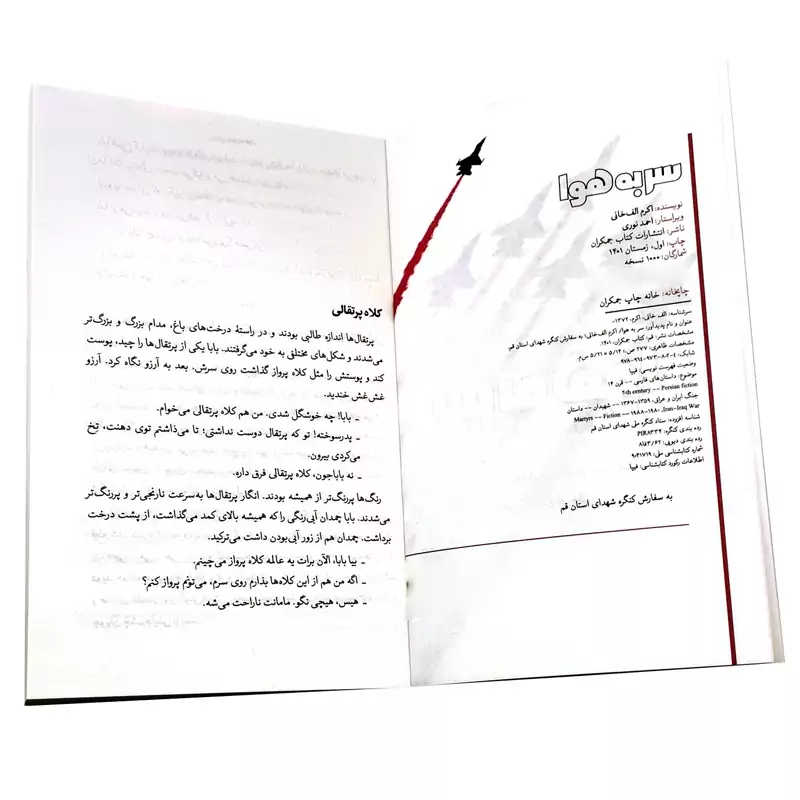 سر به هوا
نویسنده: اکرم الف‌خانی
ویراستار: احمد نوری
ناشر: انتشارات کتاب جمکران
چاپ: اول، زمستان ۱۴۰۱
شمارگان: ۱۰۰۰ نسخه
چاپخانه: خانه چاپ جمکران
سرشناسه: الف خانی، اکرم، ۱۳۷۲-
عنوان و نام پدیدآور: سر به هوا/ اکرم الف‌خانی؛ به سفارش کنگره شهدای استان قم
مشخصات نشر: قم، کتاب جمکران، ۱۴۰۱.
مشخصات ظاهری: ۲۷۷ ص؛ ۱۴/۵ × ۲۱/۵ س‌م.
شابک:
وضعیت فهرست نویسی: فیپا
موضوع: داستان‌های فارسی -- قرن ۱۴
Persian fiction -- 20th century
جنگ ایران و عراق، ۱۳۵۹-۱۳۶۷ -- شهیدان -- داستان
Iran-Iraq War, 1980-1988 -- Martyrs -- Fiction
شناسه افزوده: ستاد کنگره ملی شهدای استان قم
رده بندی کنگره: PIR۸۳۳۴
رده بندی دیویی: ۸فا۳/۶۲
شماره کتابشناسی ملی: ۹۰۲۱۷۱۹
اطلاعات رکورد کتابشناسی: فیپا
به سفارش کنگره شهدای استان قم
کلاه پرتقالی
پرتقال‌ها اندازه طالبی بودند و در راستهٔ درخت‌های باغ، مدام بزرگ و بزرگ‌تر
می‌شدند و شکل‌های مختلفی به خود می‌گرفتند. بابا یکی از پرتقال‌ها را چید، پوست
کند و پوستش را مثل کلاه پرواز گذاشت روی سرش. بعد به آرزو نگاه کرد. آرزو
غش‌غش خندید.
ـ بابا! چه خوشگل شدی. من هم کلاه پرتقالی می‌خوام.
ـ پدرسوخته! تو که پرتقال دوست نداشتی؛ تا می‌ذاشتم توی دهنت، تِخ
می‌کردی بیرون.
ـ نه باباجون، کلاه پرتقالی فرق داره.
رنگ‌ها پررنگ‌تر از همیشه بودند. انگار پرتقال‌ها به‌سرعت نارنجی‌تر و پررنگ‌تر
می‌شدند. بابا چمدان آبی‌رنگی را که همیشه بالای کمد می‌گذاشت، از پشت درخت
برداشت. چمدان هم از زور آبی‌بودن داشت می‌ترکید.
ـ بیا بابا، الآن برات یه عالمه کلاه پرواز می‌چینم.
ـ اگه من هم از این کلاه‌ها بذارم روی سرم، می‌تونم پرواز کنم؟
ـ هیس، هیچی نگو. مامانت ناراحت می‌شه.